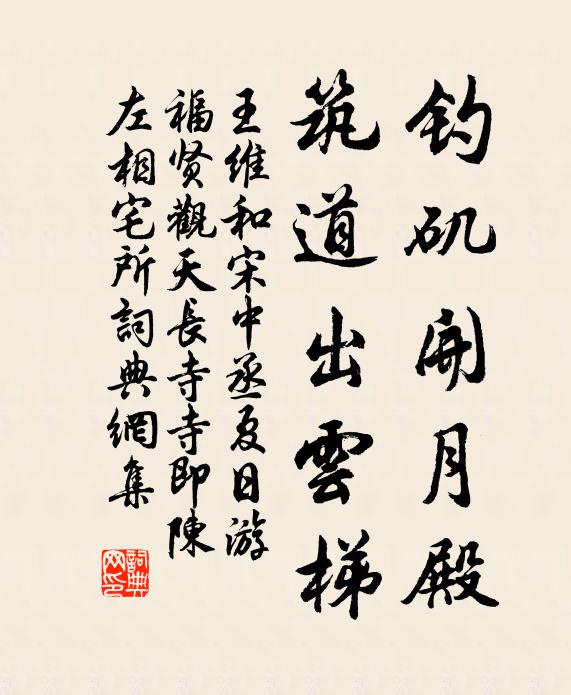 钓矶開月殿
筑道出雲梯
王维和宋中丞夏日游
福贤觀天長寺寺即陳
左相宅所詞典網集
詞典
网印